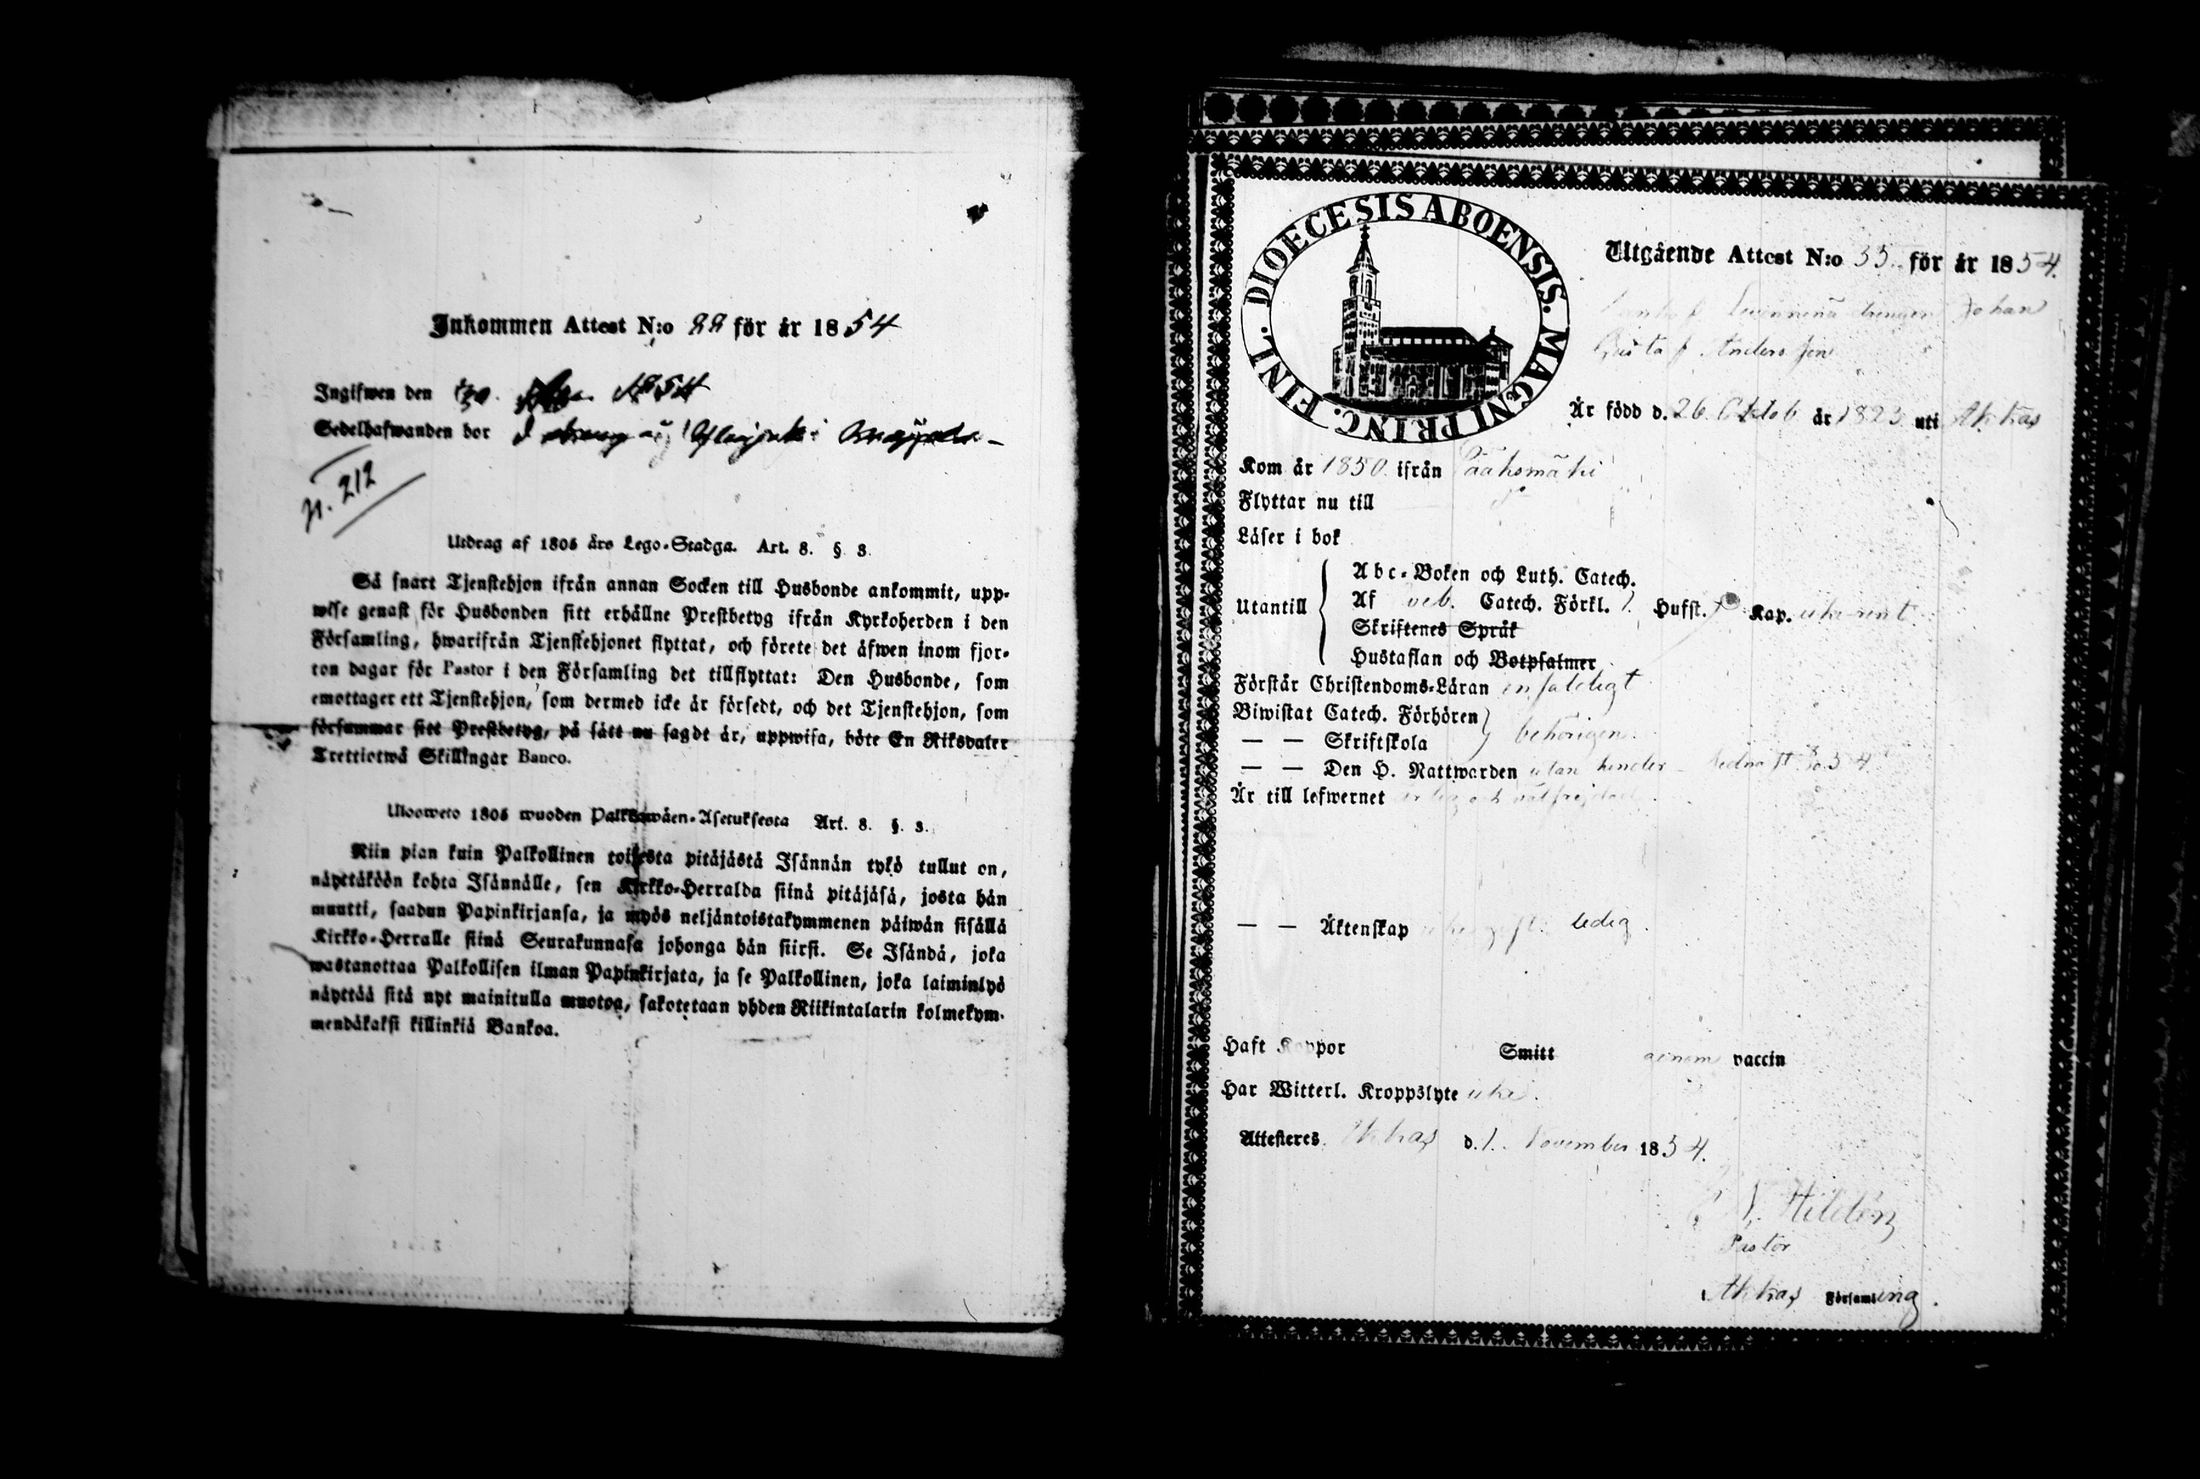 Inkommen Attest N:o 22 för år 1854
Ingifwen den 1854
Sedelhafwanden bor
n. 212
Utdrag af 1805 års Lego-Stadga. Art. 8. § 3.
Så snart Tjenstehjon ifrån annan Socken till Husbonde ankommit, upp-
wise genast för Husbonden sitt erhållne Prestbetyg ifrån Kyrkoherden i den
Församling, hwarifrån Tjenstehjonet flyttat, och förete det äfwen inom fjor-
ton dagar för Pastor i den Församling det tillflyttat: Den Husbonde, som
emottager ett Tjenstehjon, som dermed icke är försedt, och det Tjenstehjon, som
försummar sitt Prestbetyg, på sätt nu sagdt är, uppwisa, böte En Riksdaler
Trettiotwå Skillingar Banco.
Uloswets 1805 wuoden Palkkawäen-Asetuksesta Art. 8. §. 3.
Niin pian kuin Palkollinen toisesta pitäjästä Isännän tykö tullut on,
näyttäköön kohta Isännälle, sen Kirkko-Herralda siinä pitäjäsä, josta hän
muutti, saadun Papinkirjansa, ja myös neljäntoistakymmenen päiwän sisällä
Kirkko-Herralle siinä Seurakunnasa johonga hän siirsi. Se Isändä, joka
wastanottaa Palkollisen ilman Papinkirjata, ja se Palkollinen, joka laiminlyö
näyttää sitä nyt mainitulla muotoa, sakotetaan yhden Riikintalarin kolmekym-
mendäkaksi killinkiä Bankoa.
DIOECESIS ABOENSIS. MAGNI PRINC. FINL.
Utgående Attest N:o 35 för år 1854.
drengen Johan
Gustaf Andersson
Är född d. 26 Oktob år 1823 uti Akkas
Kom år 1850 ifrån Sääksmäki
Flyttar nu till
Läser i bok
Utantill
Abc-Boken och Luth. Catech.
Af Catech. Förkl. Hufst. Kap.
Skriftenes Språk
Hustaflan och Botpsalmer
Förstår Christendoms-Läran enfaldigt
Biwistat Catech. Förhören
— — Skriftskola behörigen.
— — Den H. Nattwarden utan hinder
Är till lefwernet ärlig och välfrejdad
— — Äktenskap ledig.
Haft Koppor Smitt genom vaccin
Har Witterl. Kroppslyte icke.
Attesteres Akkas d. 1. November 1854.
N. Hildén
Pastor
Akkas Församling.